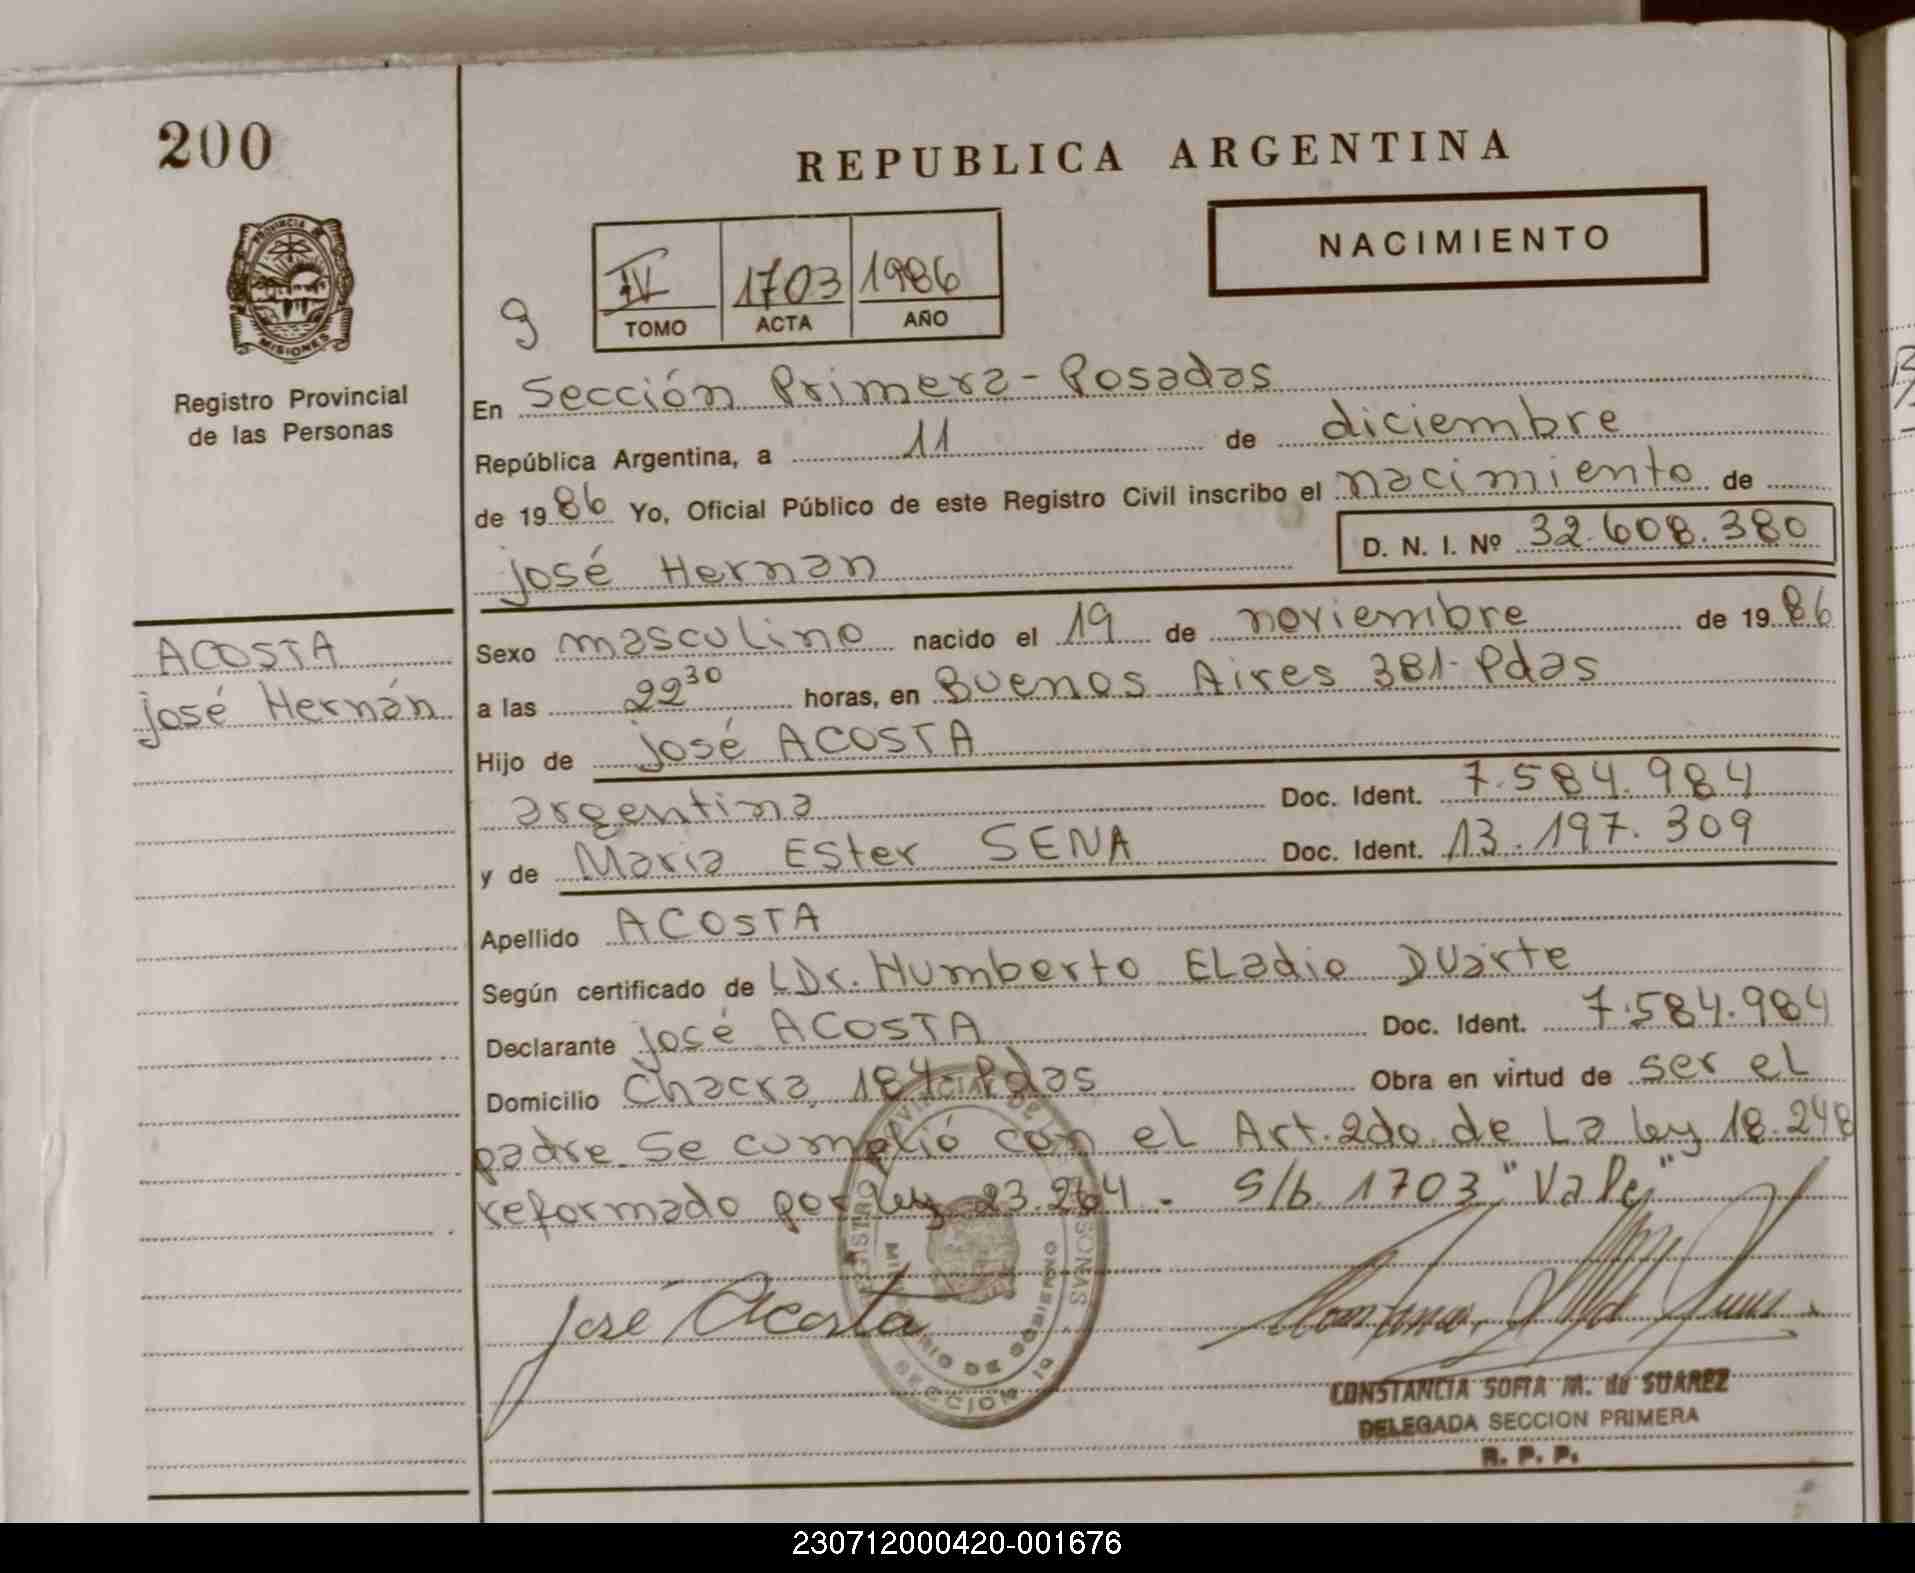 200
REPUBLICA ARGENTINA
NACIMIENTO
PROVINCIA DE
MISIONES
Registro Provincial
de las Personas
9
IV 1703 1986
TOMO ACTA AÑO
En Sección Primera - Posadas
República Argentina, a 11 de diciembre
de 1986 Yo, Oficial Público de este Registro Civil inscribo el nacimiento de
D. N. I. Nº 32.608.380
José Hernan
ACOSTA
José Hernán
Sexo masculino nacido el 19 de noviembre de 1986
a las 22 30 horas, en Buenos Aires 381- Pdas
Hijo de José ACOSTA
argentina Doc. Ident. 7.584.984
y de Maria Ester SENA Doc. Ident. 13.197.309
Apellido ACOSTA
Según certificado de LDr. Humberto Eladio Duarte
Declarante José ACOSTA Doc. Ident. 7.584.984
Domicilio Chacra 184 Pdas Obra en virtud de ser el
padre. Se cumplió con el Art. 2do. de La ley 18.248
reformado por ley 23.264 - S/b. 1703 "Vale"
José Acosta
SECCION 1a
CONSTANCIA SOFIA M. de SUAREZ
DELEGADA SECCION PRIMERA
R. P. P.
230712000420-001676